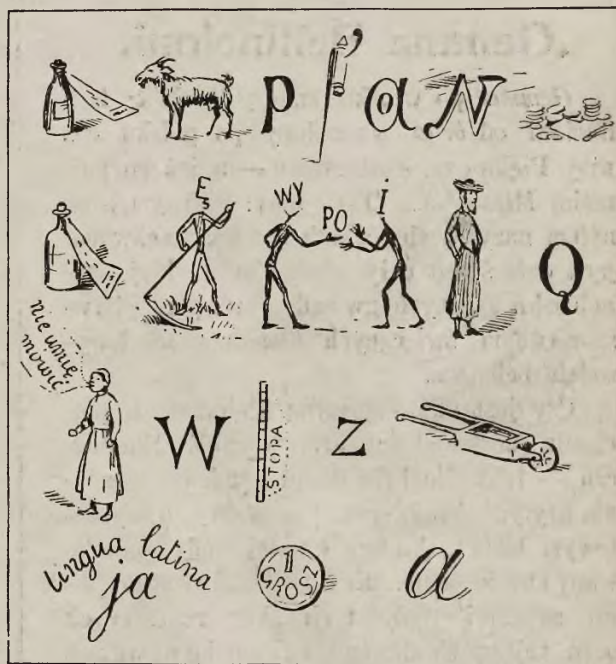 p ' a N
E WY PO i Q
nie umię
mówić
W STOPA z
Lingua latina
ja 1 GROSZ a